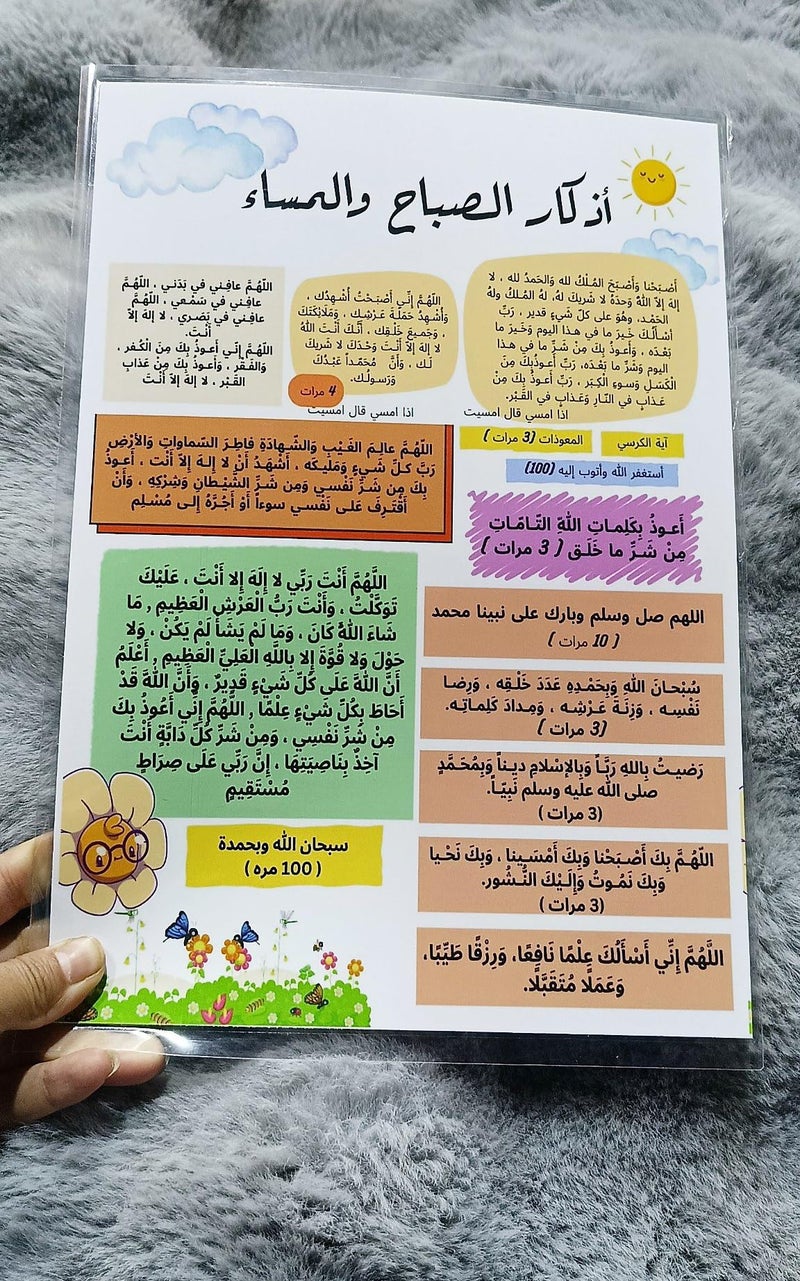 أذكار الصباح والمساء
أَصْبَحْنا وَأَصْبَحَ المُـلْكُ لله وَالحَمدُ لله ، لا
إلهَ إلاّ اللّهُ وَحدَهُ لا شَريكَ لهُ، لهُ المُـلكُ ولهُ
الحَمْـد، وهُوَ على كلّ شَيءٍ قدير ، رَبِّ
أسْـأَلُـكَ خَـيرَ ما في هـذا اليوم وَخَـيرَ ما
بَعْـدَه ، وَأَعـوذُ بِكَ مِنْ شَـرِّ ما في هـذا
اليوم وَشَرِّ ما بَعْـدَه، رَبِّ أَعـوذُبِكَ مِنَ
الْكَسَـلِ وَسـوءِ الْكِـبَر ، رَبِّ أَعـوذُ بِكَ مِنْ
عَـذابٍ في النّـارِ وَعَـذابٍ في القَـبْر.
اذا امسي قال امسيت
اللّهُـمَّ إِنِّـي أَصْبَـحْتُ أُشْـهِدُك ،
وَأُشْـهِدُ حَمَلَـةَ عَـرْشِـك ، وَمَلَائِكَتَكَ
، وَجَـميعَ خَلْـقِك ، أَنَّـكَ أَنْـتَ اللهُ
لا إلهَ إلاّ أَنْـتَ وَحْـدَكَ لا شَريكَ
لَـك ، وَأَنَّ مُحَمّـداً عَبْـدُكَ
وَرَسولُـك.
4 مرات
اذا امسي قال امسيت
اللّهُـمَّ عافِـني في بَدَنـي ، اللّهُـمَّ
عافِـني في سَمْـعي ، اللّهُـمَّ
عافِـني في بَصَـري ، لا إلهَ إلاّ
أَنْـتَ.
اللّهُـمَّ إِنّـي أَعـوذُ بِكَ مِنَ الْكُـفر ،
وَالفَـقْر ، وَأَعـوذُ بِكَ مِنْ عَذابِ
القَـبْر ، لا إلهَ إلاّ أَنْـتَ
آية الكرسي
المعوذات (3 مرات )
أستغفر الله وأتوب إليه (100)
اللّهُـمَّ عالِـمَ الغَـيْبِ وَالشّـهادَةِ فاطِـرَ السّماواتِ وَالأرْضِ
رَبَّ كـلِّ شَـيءٍ وَمَليـكَه ، أَشْهَـدُ أَنْ لا إِلـهَ إِلاّ أَنْت ، أَعـوذُ
بِكَ مِن شَـرِّ نَفْسـي وَمِن شَـرِّ الشَّيْطانِ وَشِرْكِهِ ، وَأَنْ
أَقْتَـرِفَ عَلـى نَفْسـي سوءاً أَوْ أَجُـرَّهُ إِلـى مُسْـلِم
أَعـوذُ بِكَلِمـاتِ اللّهِ التّـامّـاتِ
مِنْ شَـرِّ ما خَلَـق ( 3 مرات )
اللَّهُمَّ أَنْتَ رَبِّي لا إِلَهَ إِلا أَنْتَ ، عَلَيْكَ
تَوَكَّلْتُ ، وَأَنْتَ رَبُّ الْعَرْشِ الْعَظِيمِ , مَا
شَاءَ اللَّهُ كَانَ ، وَمَا لَمْ يَشَأْ لَمْ يَكُنْ ، وَلا
حَوْلَ وَلا قُوَّةَ إِلا بِاللَّهِ الْعَلِيِّ الْعَظِيمِ , أَعْلَمُ
أَنَّ اللَّهَ عَلَى كُلِّ شَيْءٍ قَدِيرٌ ، وَأَنَّ اللَّهَ قَدْ
أَحَاطَ بِكُلِّ شَيْءٍ عِلْمًا , اللَّهُمَّ إِنِّي أَعُوذُ بِكَ
مِنْ شَرِّ نَفْسِي ، وَمِنْ شَرِّ كُلِّ دَابَّةٍ أَنْتَ
آخِذٌ بِنَاصِيَتِهَا ، إِنَّ رَبِّي عَلَى صِرَاطٍ
مُسْتَقِيمٍ
اللهم صل وسلم وبارك على نبينا محمد
( 10 مرات )
سُبْحـانَ اللهِ وَبِحَمْـدِهِ عَدَدَ خَلْـقِه ، وَرِضـا
نَفْسِـه ، وَزِنَـةَ عَـرْشِـه ، وَمِـدادَ كَلِمـاتِـه.
(3 مرات )
رَضيـتُ بِاللهِ رَبَّـاً وَبِالإسْلامِ ديـناً وَبِمُحَمَّدٍ
صلى الله عليه وسلم نَبِيّـاً.
(3 مرات )
اللّهُـمَّ بِكَ أَصْـبَحْنا وَبِكَ أَمْسَـينا ، وَبِكَ نَحْـيا
وَبِكَ نَمُـوتُ وَإِلَـيْكَ النُّـشُور.
(3 مرات )
سبحان الله وبحمدة
( 100 مره )
اللَّهُمَّ إِنِّي أَسْأَلُكَ عِلْمًا نَافِعًا، وَرِزْقًا طَيِّبًا،
وَعَمَلًا مُتَقَبَّلًا.